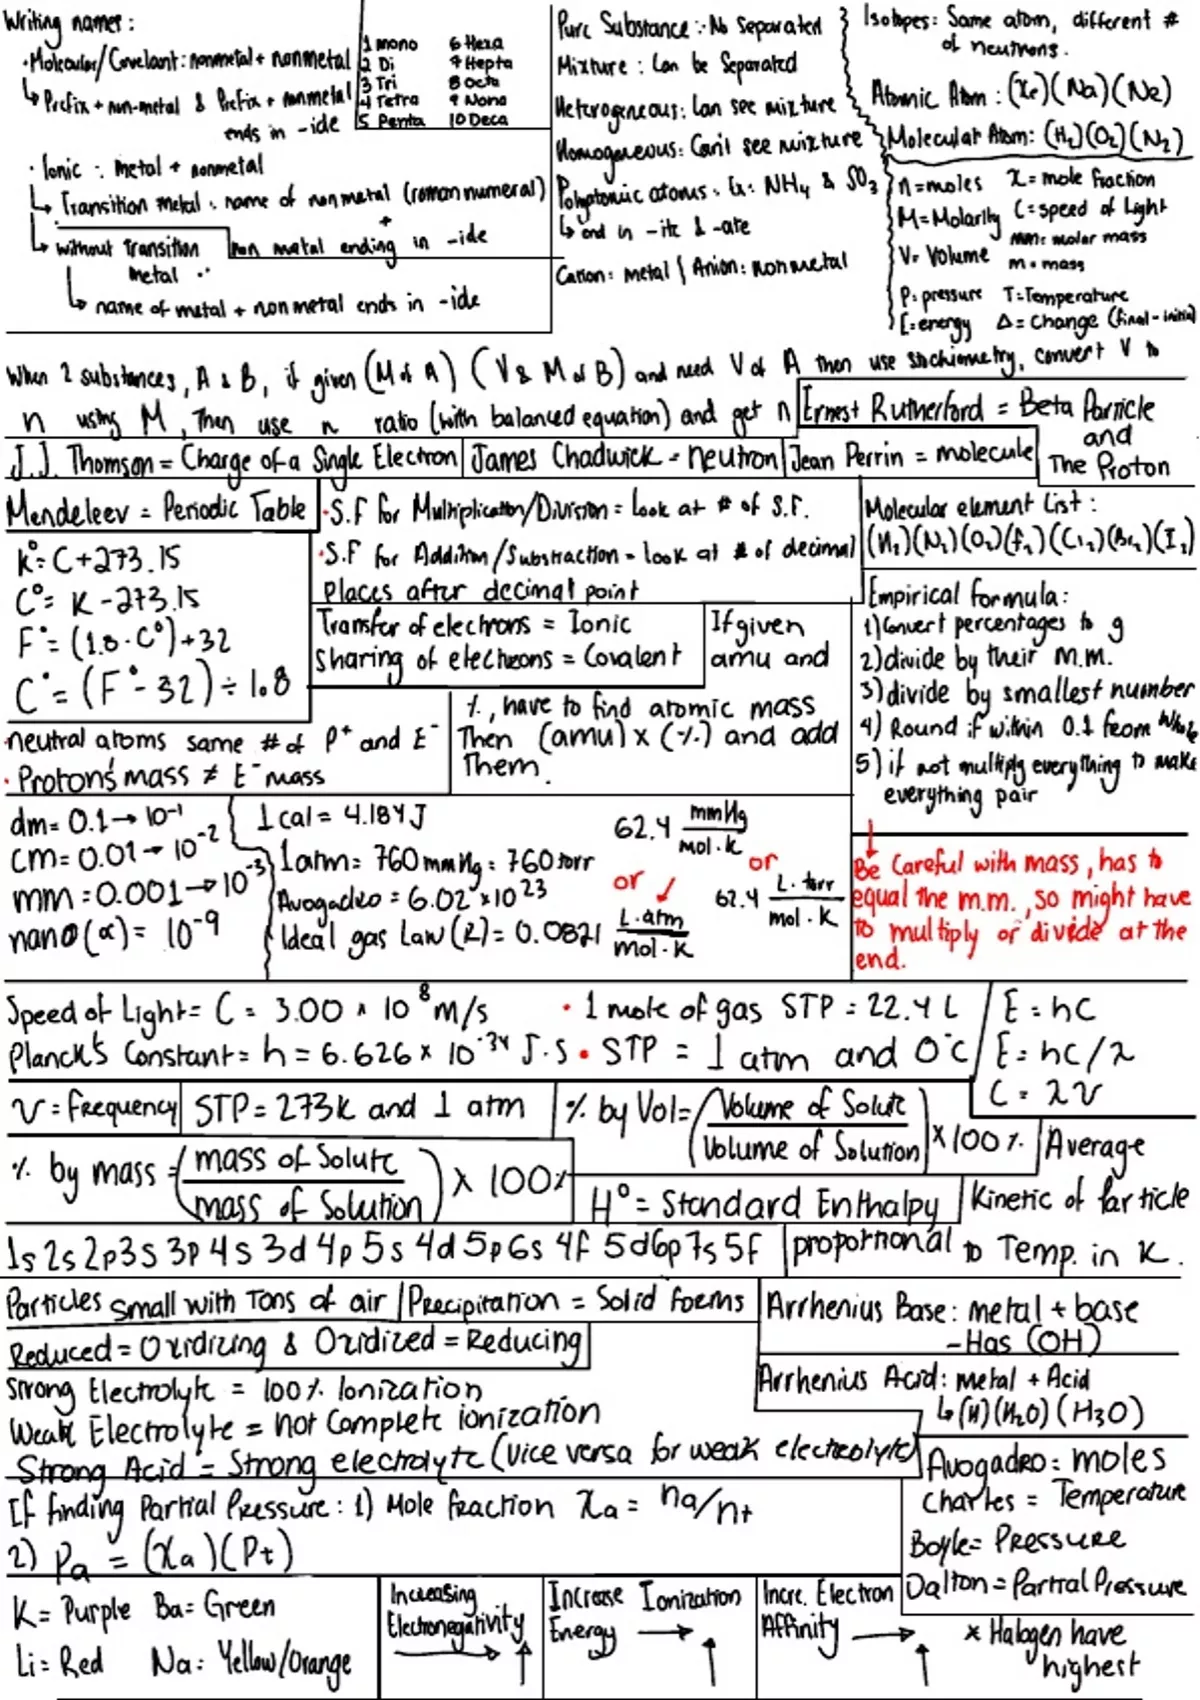 Writing names:
·Molecular/Covelant: nonmetal + nonmetal
↳ Prefix + non-metal & Prefix + nonmetal
ends in -ide
· Ionic : metal + nonmetal
↳ Transition metal : name of nonmetal (roman numeral)
+
non metal ending in -ide
↳ without Transition
metal ..
↳ name of metal + nonmetal ends in -ide
1 mono 6 Hexa
2 Di 7 Hepta
3 Tri 8 Octa
4 Tetra 9 Nona
5 Penta 10 Deca
Pure Substance : No Separated
Mixture : Can be Separated
Heterogeneous: Can see mixture
Homogeneous: Can't see mixture
Polyatomic atoms : Ex: NH4 & SO3
↳ end in -ite & -ate
Cation: metal { Anion: nonmetal
Isotopes: Same atom, different #
of neutrons.
Atomic Atom : (Xe)(Na)(Ne)
Molecular Atom: (H2)(O2)(N2)
n=moles X=mole fraction
M=Molarity C=speed of Light
mm= molar mass
V= Volume m=mass
P=pressure T=Temperature
E=energy Δ=Change (final-initial)
When 2 substances, A & B, if given (M of A) (V & M of B) and need V of A then use stochiometry, convert V to
n using M, Then use n ratio (with balanced equation) and get n
Ernest Rutherford = Beta Particle
and
The Proton
J.J. Thomson = Charge of a Single Electron
James Chadwick = neutron
Jean Perrin = molecule
Mendeleev = Periodic Table
·S.F for Multiplication/Division = Look at # of S.F.
·S.F for Addition/Substraction = look at # of decimal
Places after decimal point
Molecular element List :
(H2)(N2)(O2)(F2)(Cl2)(Br2)(I2)
K°= C+273.15
C°= K-273.15
F°= (1.8·C°)+32
C°= (F°-32)÷1.8
Transfer of electrons = Ionic
Sharing of electrons = Covalent
If given
amu and
%, have to find atomic mass
Then (amu)x(%) and add
Them.
Empirical formula:
1)Convert percentages to g
2)divide by their m.m.
3)divide by smallest number
4) Round if within 0.1 from whole
5) if not multiply everything to make
everything pair
·neutral atoms same # of P+ and E-
·Protons' mass ≠ E- mass
dm= 0.1→ 10-1
cm= 0.01→ 10-2
mm =0.001→10-3
nano(α)= 10-9
1 cal = 4.184J
1atm= 760mmHg= 760torr
Avogadro = 6.02×10 23
Ideal gas Law (R)= 0.0821 L·atm/mol·K
62.4 mmHg/mol·K
or
or
62.4 L·torr/mol·K
Be Careful with mass, has to
equal the m.m., so might have
to multiply or divide at the
end.
Speed of Light= C = 3.00 × 10 8 m/s
Planck's Constant= h = 6.626 × 10 -34 J·S
· 1 mole of gas STP = 22.4 L
· STP = 1 atm and 0°C
E = hC
E = hC/λ
C = λν
ν = frequency
STP= 273K and 1 atm
% by Vol= (Volume of Solute/Volume of Solution) × 100%
% by mass = (mass of Solute/mass of Solution) × 100%
H° = Standard Enthalpy
Average
Kinetic of Particle
proportional to Temp. in K.
1s 2s 2p3s 3p 4s 3d 4p 5s 4d 5p6s 4f 5d6p7s5f
Particles small with Tons of air
Precipitation = Solid forms
Reduced = Oxidizing & Oxidized = Reducing
Arrhenius Base: metal + base
-Has (OH)
Arrhenius Acid: metal + Acid
↳(H)(H2O)(H3O)
Strong Electrolyte = 100% Ionization
Weak Electrolyte = Not Complete ionization
Strong Acid = Strong electrolyte (vice versa for weak electrolyte)
If finding Partial Pressure : 1) Mole fraction Xa = na/nt
2) Pa = (Xa)(Pt)
Avogadro: moles
Charles = Temperature
Boyle= Pressure
Dalton = Partial Pressure
K= Purple Ba= Green
Li= Red Na= Yellow/Orange
Increasing
Electronegativity
→ ↑
Increase Ionization
Energy → ↑
Incr. Electron
Affinity → ↑
* Halogen have
highest